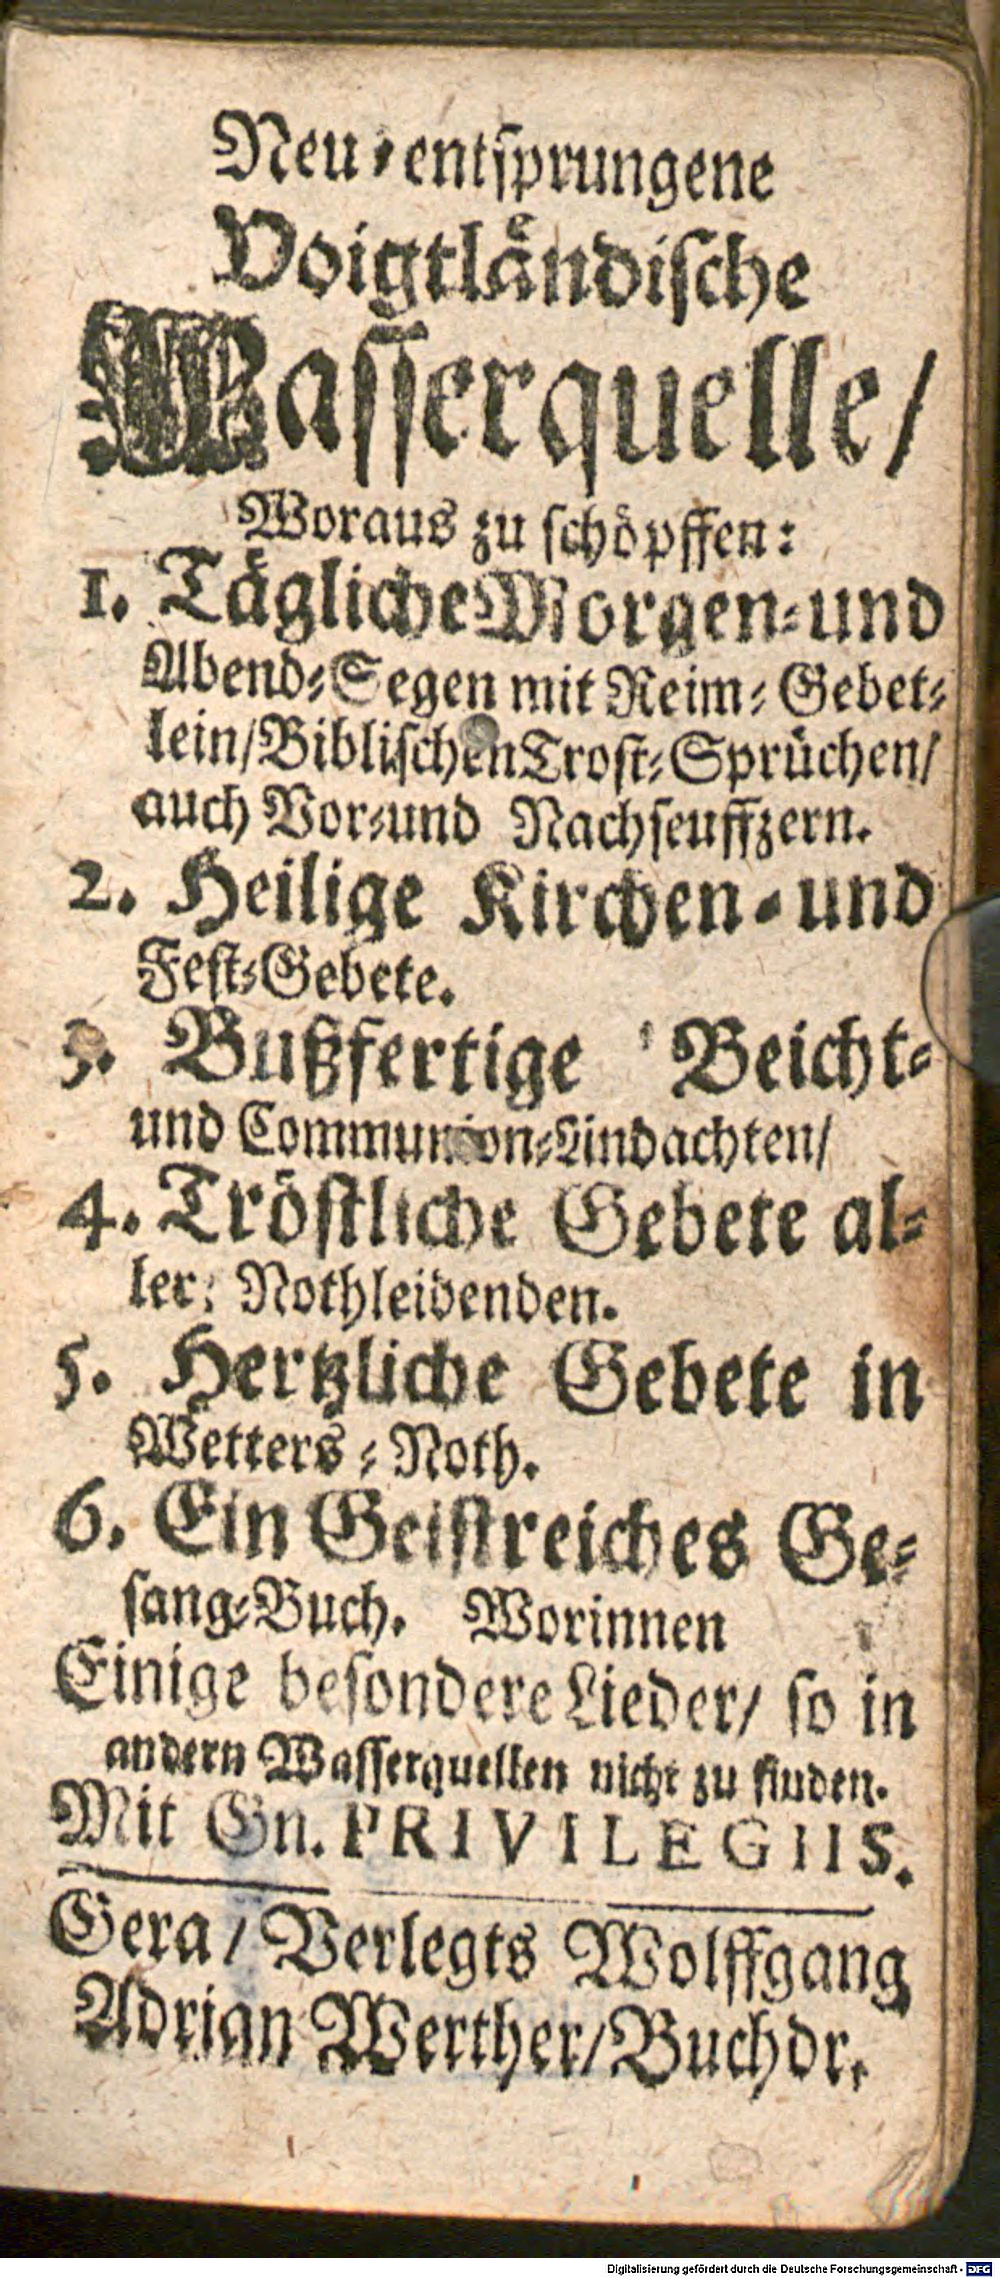 Neu-entsprungene
Voigtländische
Wasserquelle/
Woraus zu schöpffen:
1. Tägliche Morgen-und
Abend-Segen mit Reim-Gebet-
lein/Biblischen Trost-Sprüchen/
auch Vor-und Nachseuffzern.
2. Heilige Kirchen-und
Fest-Gebete.
3. Bußfertige Beicht-
und Communion-Andachten/
4. Tröstliche Gebete al-
ler: Nothleidenden.
5. Hertzliche Gebete in
Wetters-Noth.
6. Ein Geistreiches Ge-
sang-Buch. Worinnen
Einige besondere Lieder/ so in
andern Wasserquellen nicht zu finden.
Mit Gn. PRIVILEGIIS.
Gera/ Verlegts Wolffgang
Adrian Werther/Buchdr.
Digitalisierung gefördert durch die Deutsche Forschungsgemeinschaft - DFG